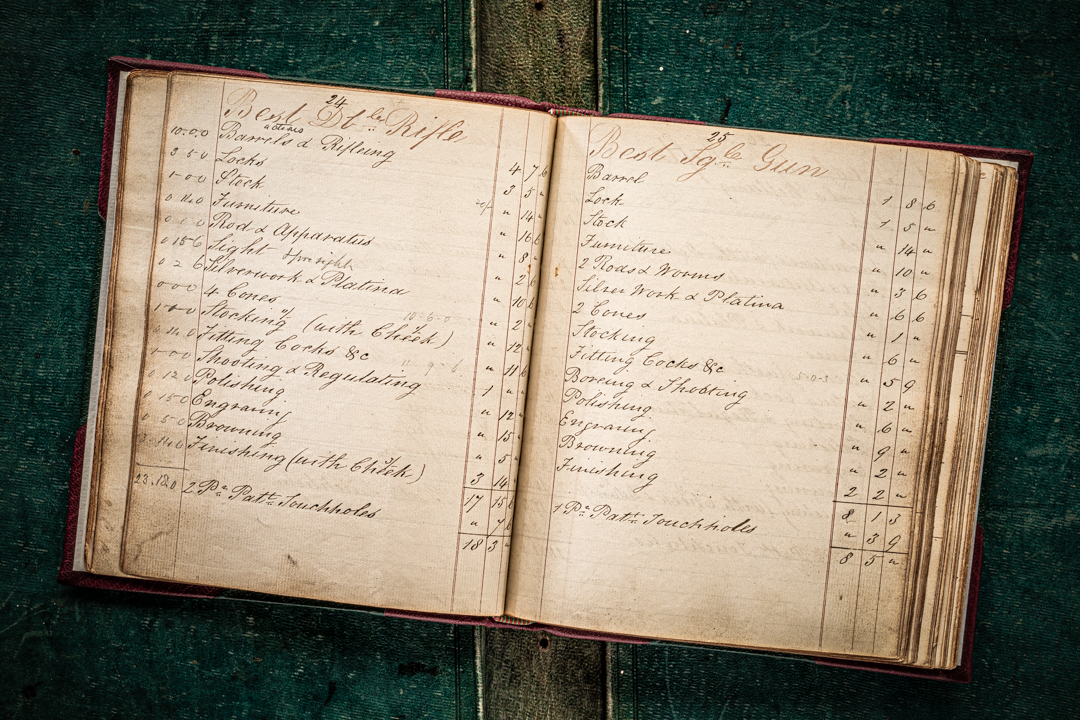 24
Best Dble Rifle
actions
10.0.0 Barrels & Rifleing 4 7 6
3 5 0 Locks 3 5 "
1-0-0 Stock " 14 "
Furniture " 16 6
Rod & Apparatus " 8
0 15 6 Sight upright " 2 6
0 2 6 Silverwork & Platina " 10 6
0 0 0 4 Cones " 2 "
Stocking (with Cheek) 10-6-0 " 12
Fitting Cocks &c " 11 6
1-0-0 Shooting & Regulating 1 "
0 12 0 Polishing " 12 "
0 15 0 Engraving " 15 "
0 5 0 Browning " 5 "
Finishing (with Cheek) 3 14
17 15
23.12.0 2 Pn Patt Touchholes " 7 6
18 3 "
25
Best Sgle Gun
Barrel 1 8 6
Lock 1 5 "
Stock " 14 "
Furniture " 10 "
2 Rods & Worms " 3 6
Silver Work & Platina " 6 6
2 Cones " 1 "
Stocking " 6 "
Fitting Cocks &c " 5 9
Boreing & Shooting " 2 "
Polishing " 6 "
Engraving " 9 "
Browning " 2 "
Finishing 2 2 "
8 1 3
1 Pn Patt Touchholes " 3 9
8 5 "